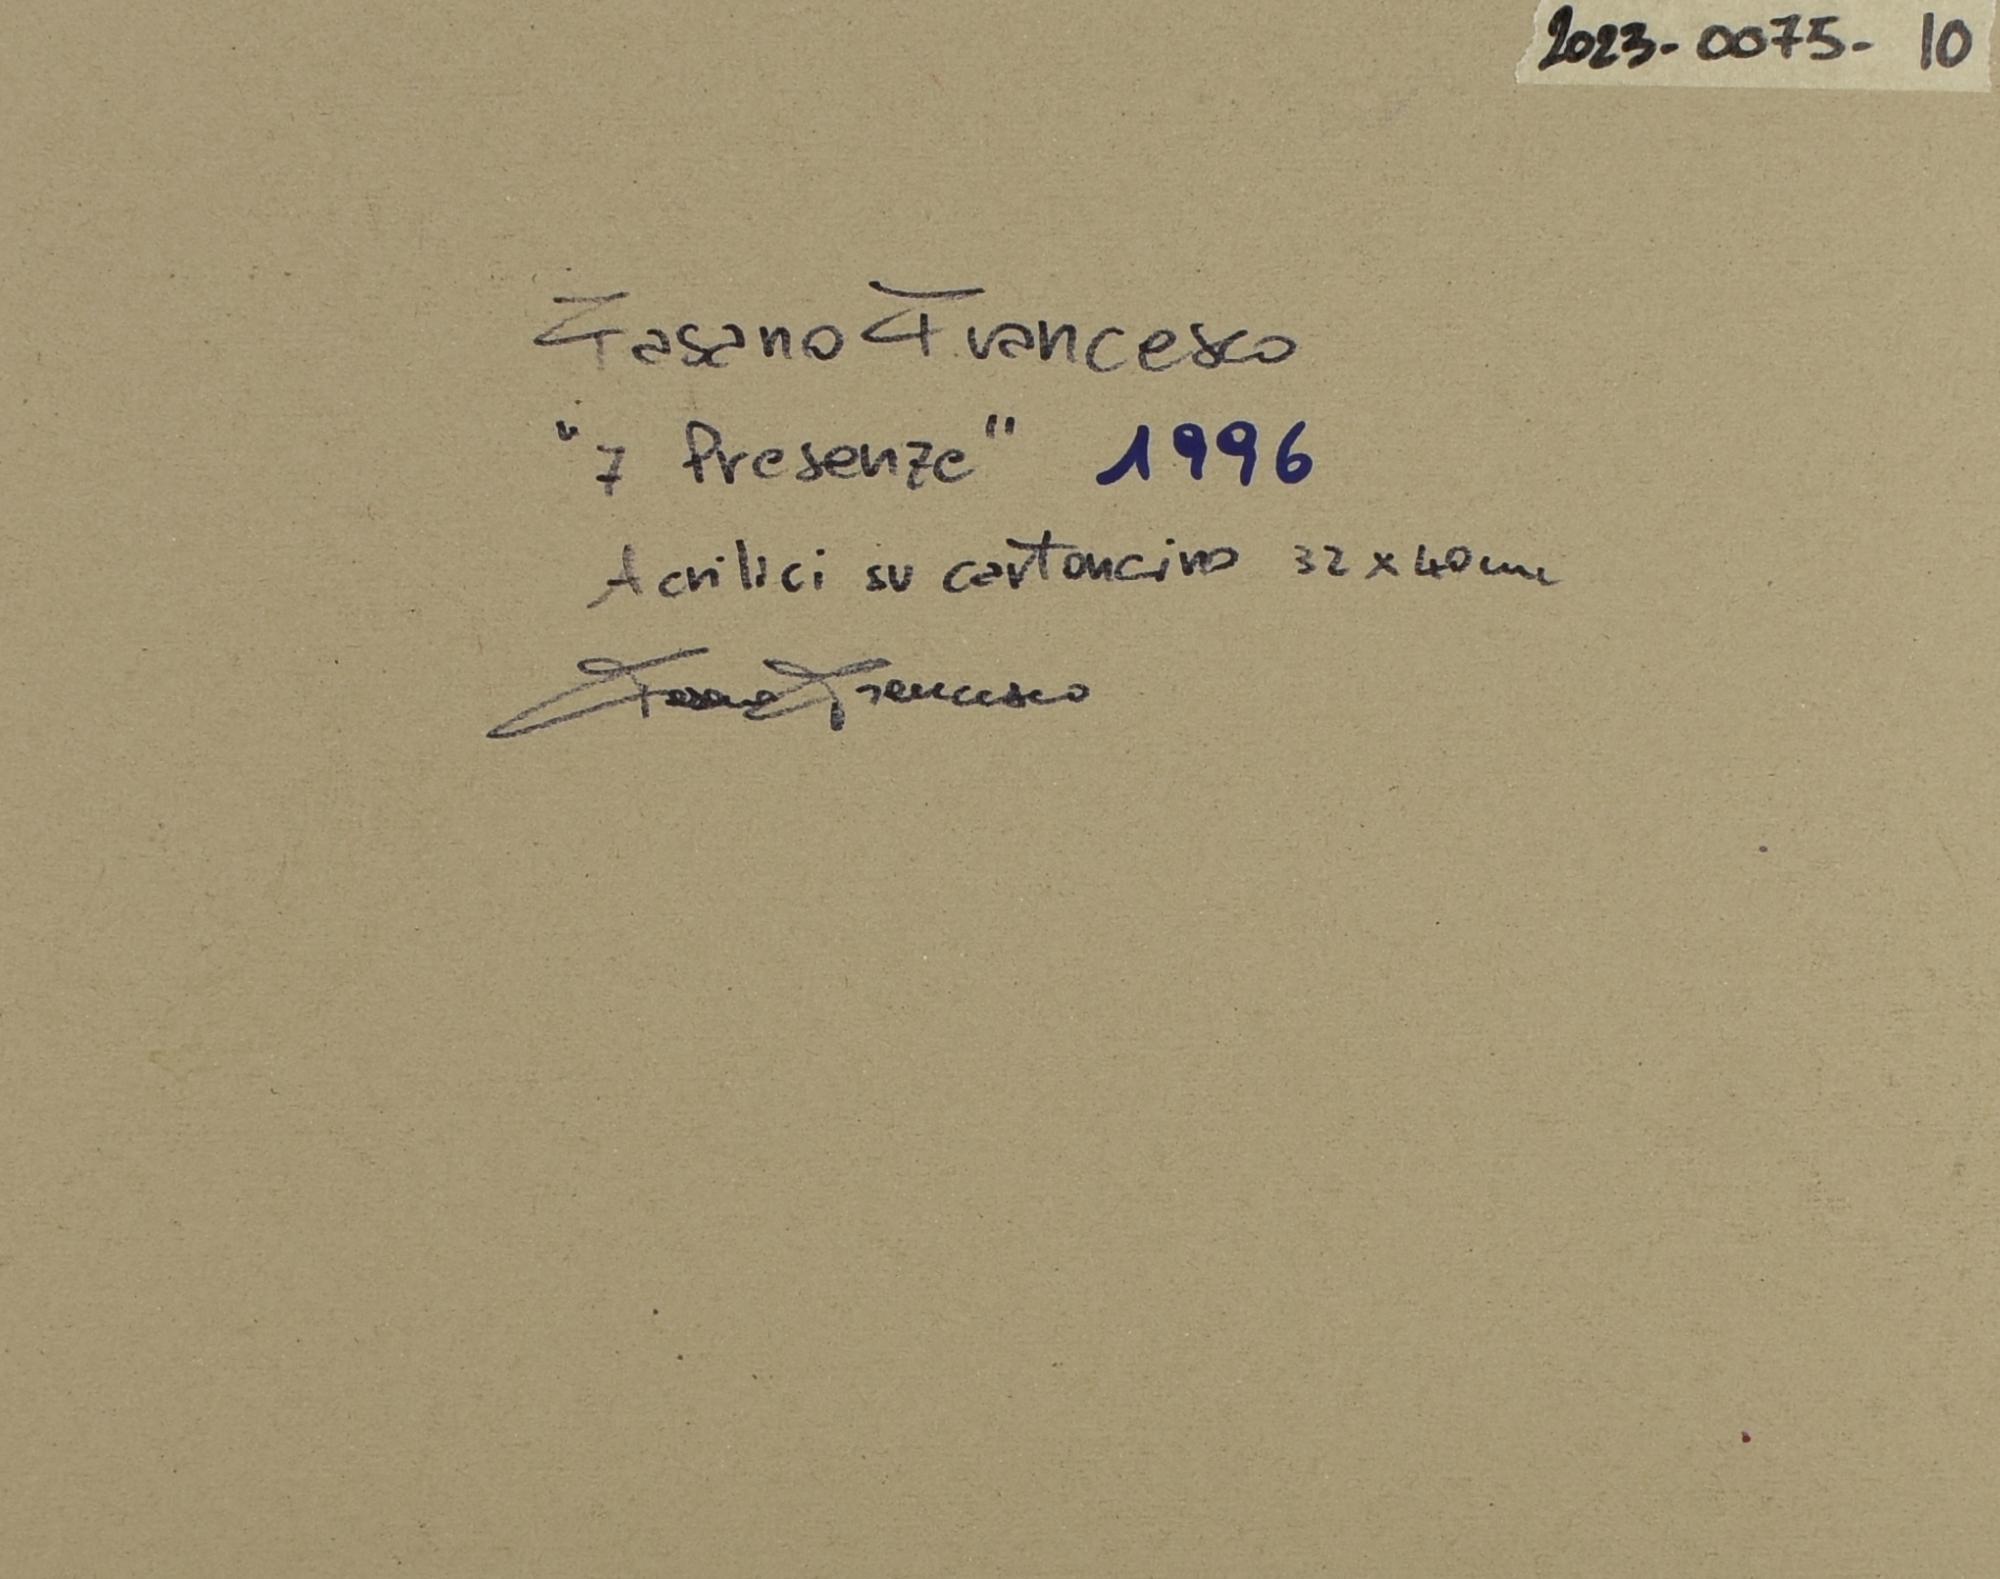 2023-0075-10
Fasano Francesco
"7 Presenze" 1996
Acrilici su cartoncino 32x40cm
Fasano Francesco